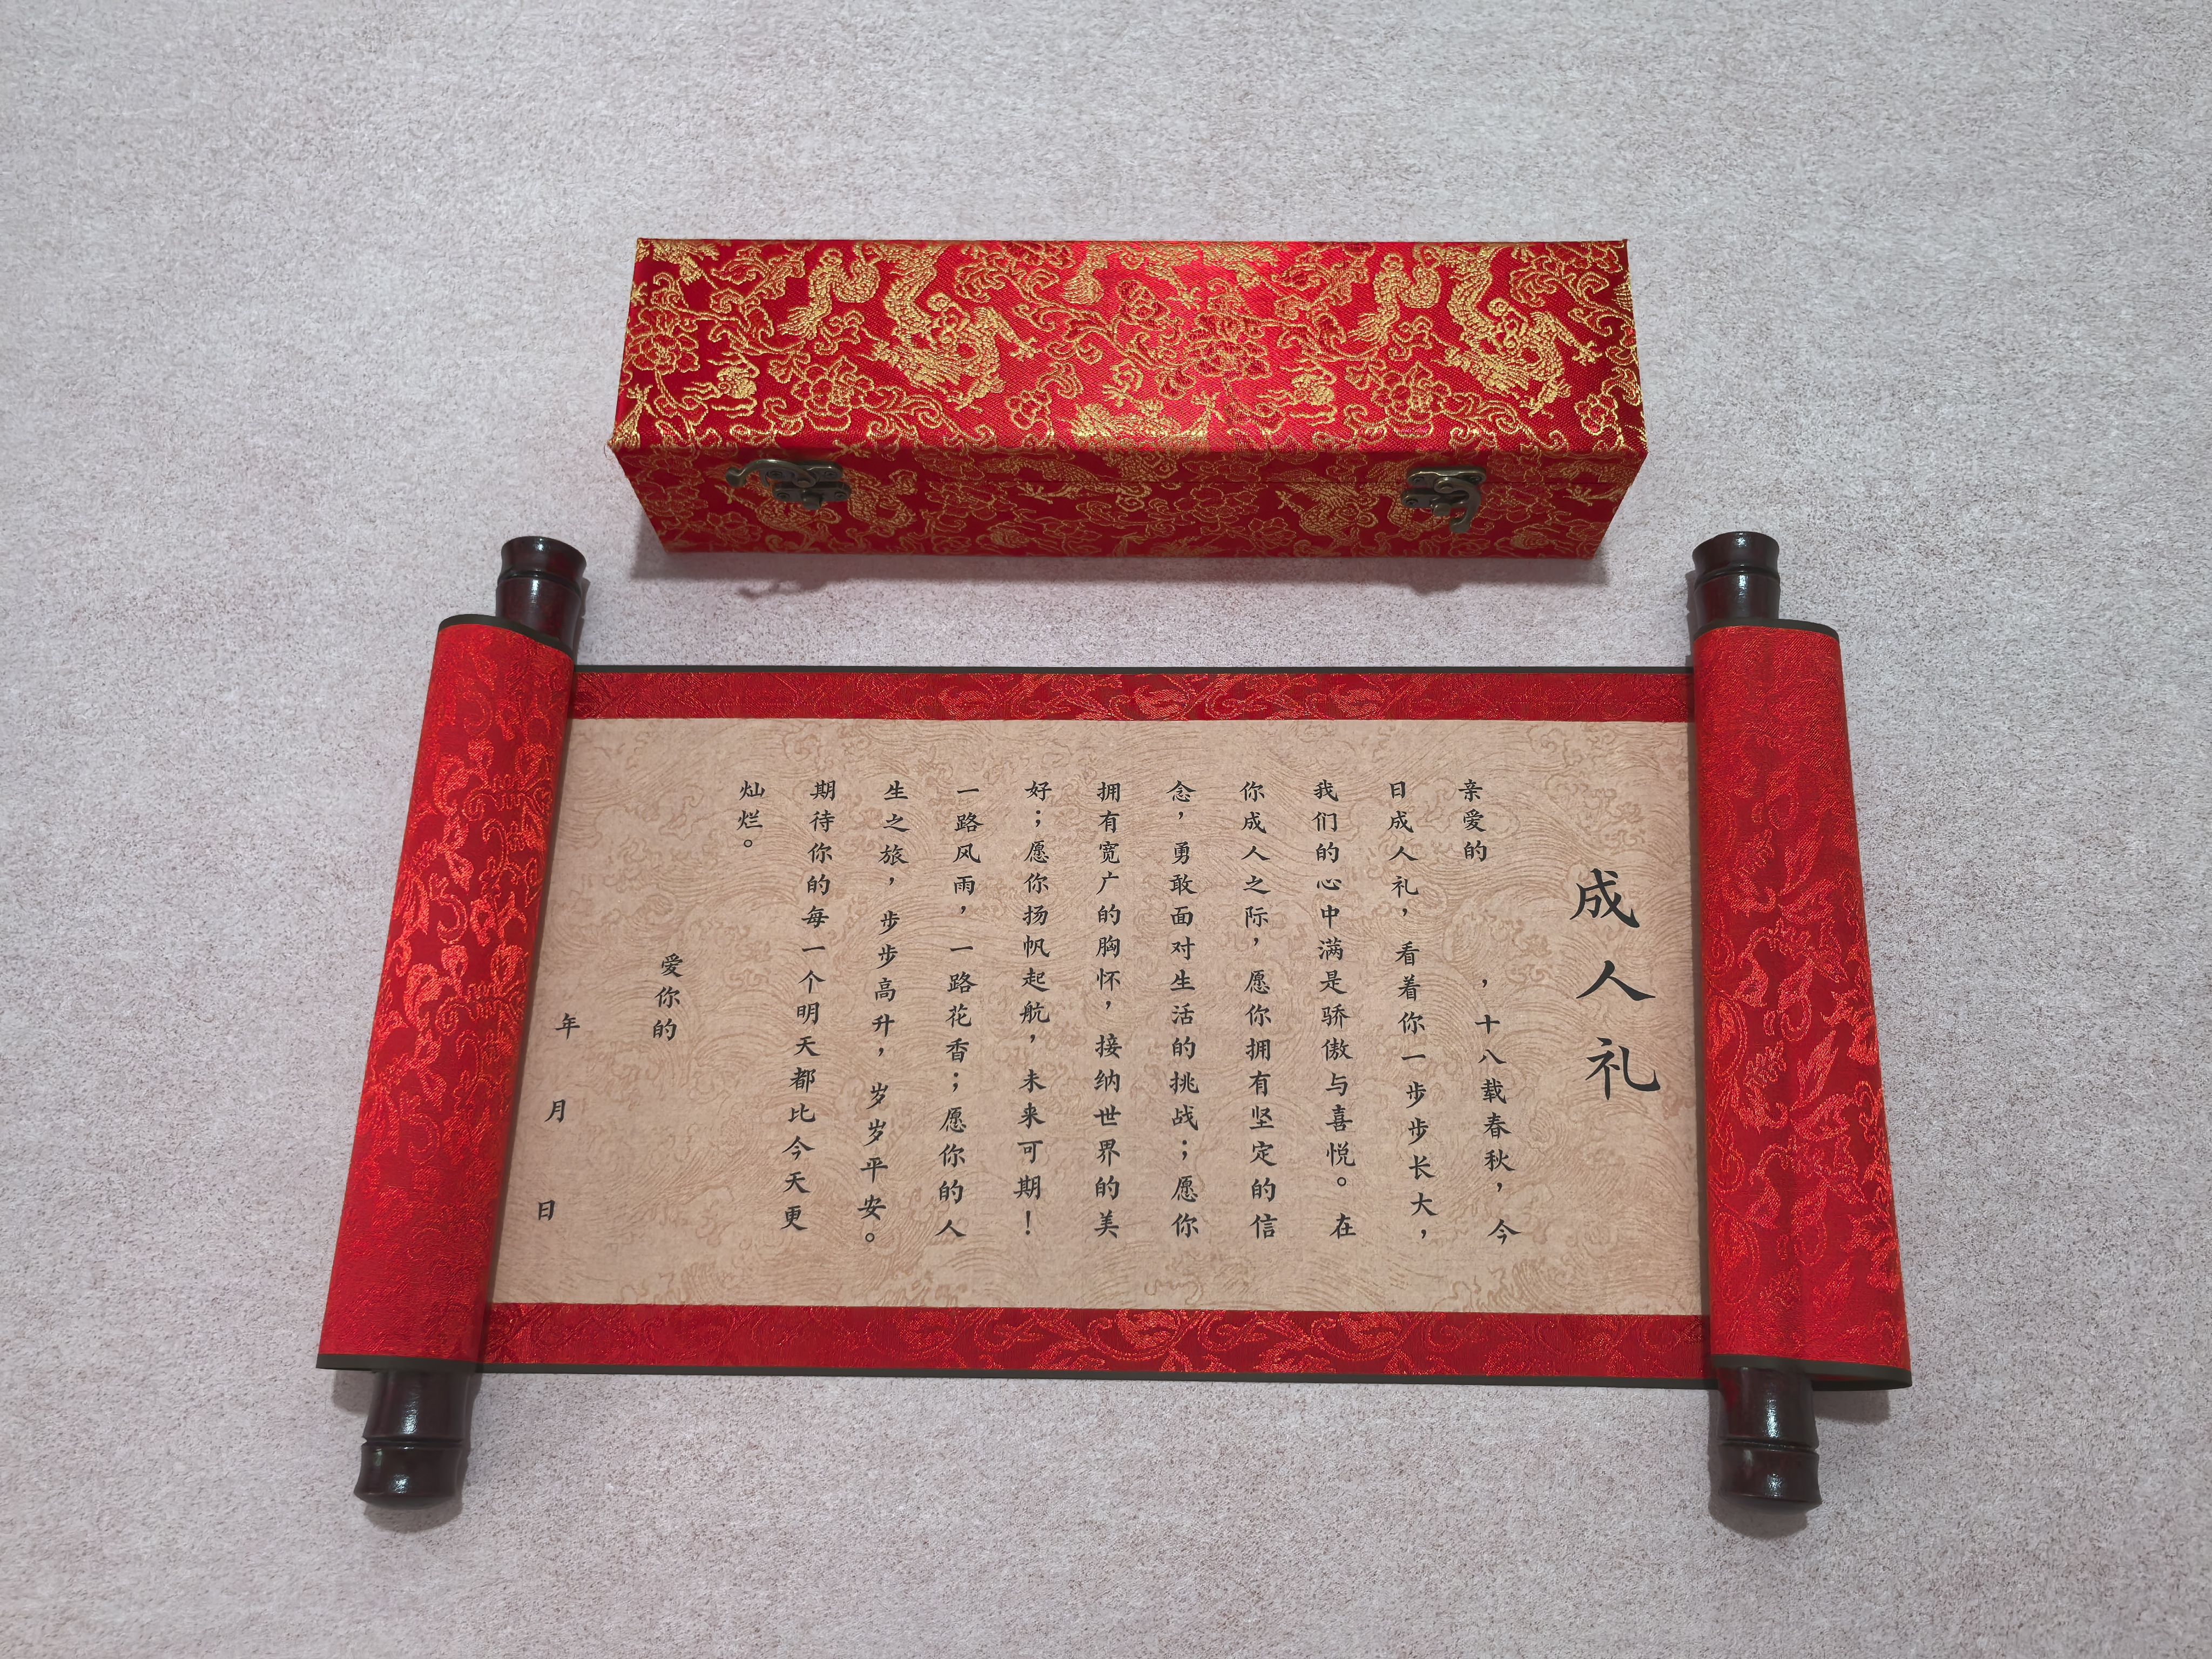 成人礼
亲爱的　　　，十八载春秋，今
日成人礼，看着你一步步长大，
我们的心中满是骄傲与喜悦。在
你成人之际，愿你拥有坚定的信
念，勇敢面对生活的挑战；愿你
拥有宽广的胸怀，接纳世界的美
好；愿你扬帆起航，未来可期！
一路风雨，一路花香；愿你的人
生之旅，步步高升，岁岁平安。
期待你的每一个明天都比今天更
灿烂。
爱你的
年　月　日